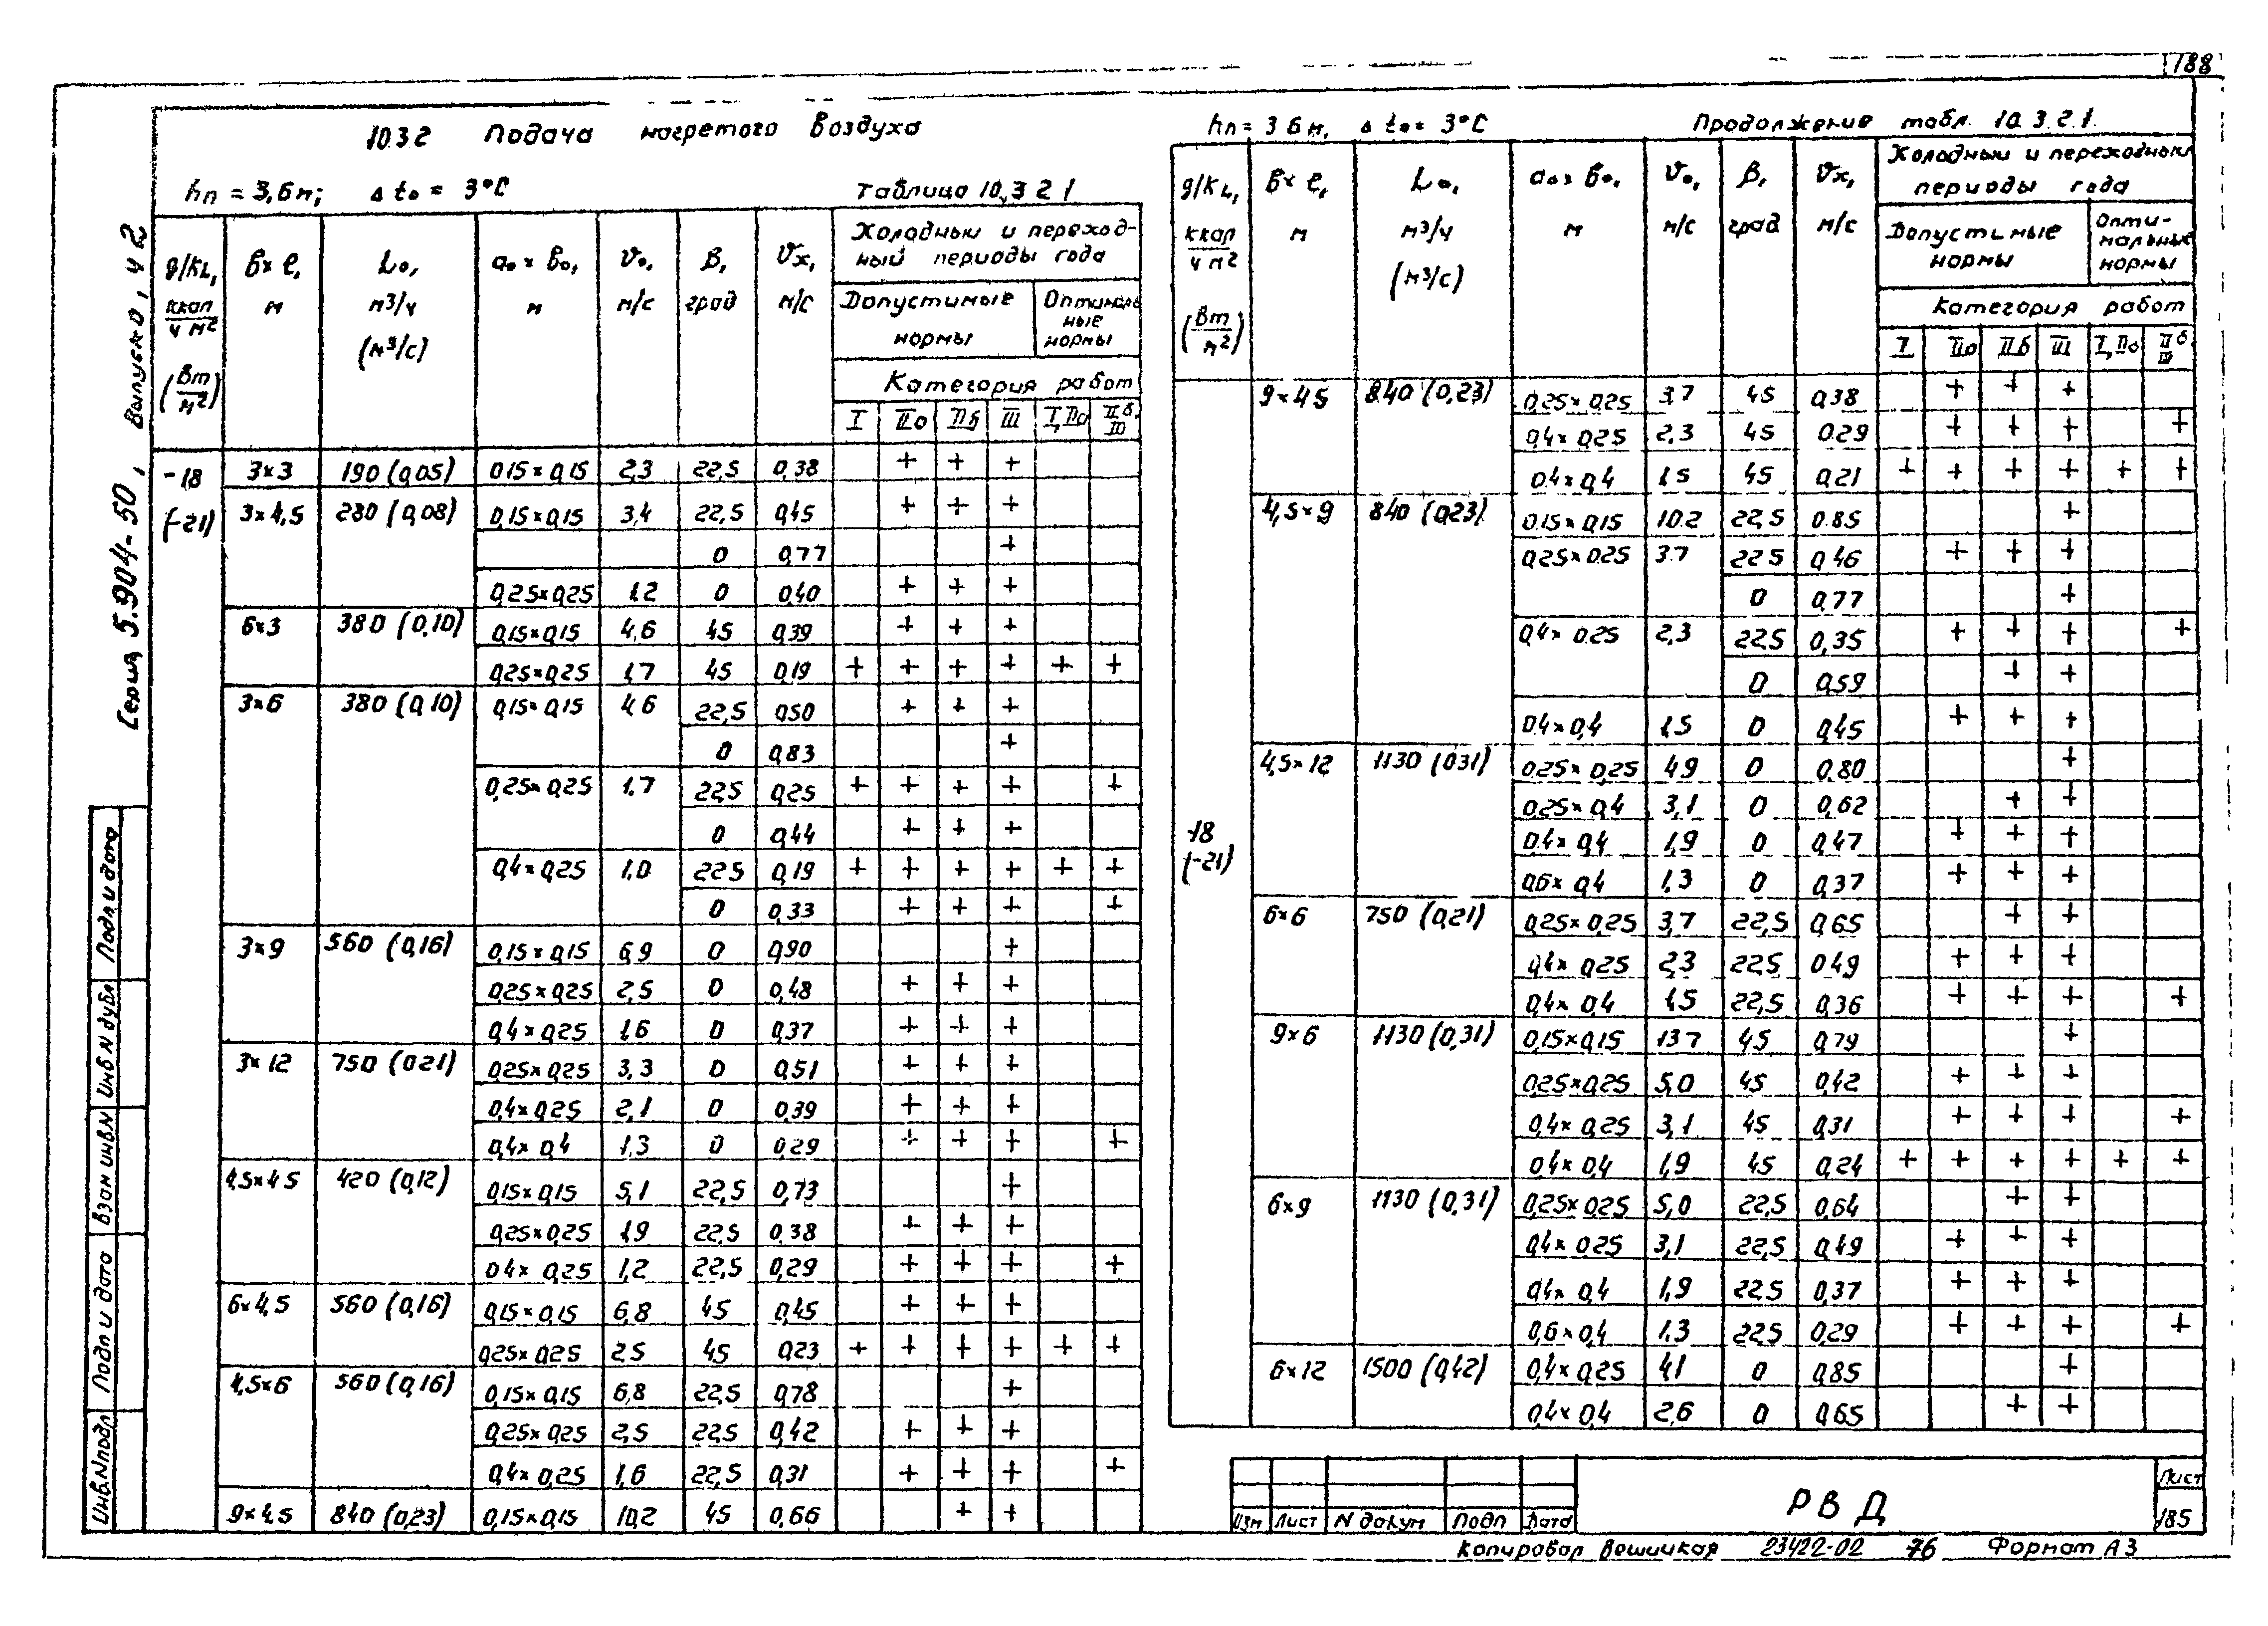 188
10.3.2 Подача нагретого воздуха
hп = 3,6м; Δ tо = 3°C Таблица 10.3 2 1
g/KL, ккал/ч м² (Вт/м²) | в× ℓ, м | Lо, м³/ч (м³/с) | aо × во, м | Vо, м/с | β, град | Vx, м/с | Холодный и переходный периоды года
Допустимые нормы | Оптимальные нормы
Категория работ
I | IIа | IIб | III | I, IIа | IIб, III
-18 (-21) | 3×3 | 190 (0,05) | 0,15 × 0,15 | 2,3 | 22,5 | 0,38 | | + | + | + | |
3×4,5 | 280 (0,08) | 0,15×0,15 | 3,4 | 22,5 | 0,45 | | + | + | + | |
0 | 0,77 | | | | + | |
0,25×0,25 | 1,2 | 0 | 0,40 | | + | + | + | |
6×3 | 380 (0,10) | 0,15×0,15 | 4,6 | 45 | 0,39 | | + | + | + | |
0,25×0,25 | 1,7 | 45 | 0,19 | + | + | + | + | + | +
3×6 | 380 (0,10) | 0,15×0,15 | 4,6 | 22,5 | 0,50 | | + | + | + | |
0 | 0,83 | | | | + | |
0,25×0,25 | 1,7 | 22,5 | 0,25 | + | + | + | + | | +
0 | 0,44 | | + | + | + | |
0,4×0,25 | 1,0 | 22,5 | 0,19 | + | + | + | + | + | +
0 | 0,33 | | + | + | + | | +
3×9 | 560 (0,16) | 0,15×0,15 | 6,9 | 0 | 0,90 | | | | + | |
0,25×0,25 | 2,5 | 0 | 0,48 | | + | + | + | |
0,4×0,25 | 1,6 | 0 | 0,37 | | + | + | + | |
3×12 | 750 (0,21) | 0,25×0,25 | 3,3 | 0 | 0,51 | | + | + | + | |
0,4×0,25 | 2,1 | 0 | 0,39 | | + | + | + | |
0,4×0,4 | 1,3 | 0 | 0,29 | | + | + | + | | +
4,5×4,5 | 420 (0,12) | 0,15×0,15 | 5,1 | 22,5 | 0,73 | | | | + | |
0,25×0,25 | 1,9 | 22,5 | 0,38 | | + | + | + | |
0,4×0,25 | 1,2 | 22,5 | 0,29 | | + | + | + | | +
6×4,5 | 560 (0,16) | 0,15×0,15 | 6,8 | 45 | 0,45 | | + | + | + | |
0,25×0,25 | 2,5 | 45 | 0,23 | + | + | + | + | + | +
4,5×6 | 560 (0,16) | 0,15×0,15 | 6,8 | 22,5 | 0,78 | | | | + | |
0,25×0,25 | 2,5 | 22,5 | 0,42 | | + | + | + | |
0,4×0,25 | 1,6 | 22,5 | 0,31 | | + | + | + | | +
9×4,5 | 840 (0,23) | 0,15×0,15 | 10,2 | 45 | 0,66 | | | + | + | |
hп = 3 6м, Δ tо = 3°C Продолжение табл. 10.3.2.1.
g/KL, ккал/ч м² (Вт/м²) | в× ℓ, м | Lо, м³/ч (м³/с) | aо × во, м | Vо, м/с | β, град | Vx, м/с | Холодный и переходный периоды года
Допустимые нормы | Оптимальные нормы
Категория работ
I | IIа | IIб | III | I, IIа | IIб III
-18 (-21) | 9×4,5 | 840 (0,23) | 0,25×0,25 | 3,7 | 45 | 0,38 | | + | + | + | |
0,4×0,25 | 2,3 | 45 | 0.29 | | + | + | + | | +
0,4×0,4 | 1,5 | 45 | 0,21 | + | + | + | + | + | +
4,5×9 | 840 (0,23) | 0,15×0,15 | 10.2 | 22,5 | 0.85 | | | | + | |
0,25×0.25 | 3.7 | 22,5 | 0,46 | | + | + | + | |
0 | 0,77 | | | | + | |
0,4×0.25 | 2,3 | 22,5 | 0,35 | | + | + | + | | +
0 | 0,59 | | | + | + | |
0,4×0,4 | 1,5 | 0 | 0,45 | | + | + | + | |
4,5×12 | 1130 (0,31) | 0,25×0,25 | 4,9 | 0 | 0,80 | | | | + | |
0,25×0,4 | 3,1 | 0 | 0,62 | | | + | + | |
0,4×0,4 | 1,9 | 0 | 0,47 | | + | + | + | |
0,6×0,4 | 1,3 | 0 | 0,37 | | + | + | + | |
6×6 | 750 (0,21) | 0,25×0,25 | 3,7 | 22,5 | 0,65 | | | + | + | |
0,4×0,25 | 2,3 | 22,5 | 0,49 | | + | + | + | |
0,4×0,4 | 1,5 | 22,5 | 0,36 | | + | + | + | | +
9×6 | 1130 (0,31) | 0,15×0,15 | 13,7 | 45 | 0,79 | | | | + | |
0,25×0,25 | 5,0 | 45 | 0,42 | | + | + | + | |
0,4×0,25 | 3,1 | 45 | 0,31 | | + | + | + | | +
0,4×0,4 | 1,9 | 45 | 0,24 | + | + | + | + | + | +
6×9 | 1130 (0,31) | 0,25×0,25 | 5,0 | 22,5 | 0,64 | | | + | + | |
0,4×0,25 | 3,1 | 22,5 | 0,49 | | + | + | + | |
0,4×0,4 | 1,9 | 22,5 | 0,37 | | + | + | + | |
0,6×0,4 | 1,3 | 22,5 | 0,29 | | + | + | + | | +
6×12 | 1500 (0,42) | 0,4×0,25 | 4,1 | 0 | 0,85 | | | | + | |
0,4×0,4 | 2,6 | 0 | 0,65 | | | + | + | |
Серия 5.904-50, Выпуск 0, ч 2
Инв.Nподл | Подп и дата | Взам инв.N | Инв N дубл | Подп и дата
Изм | Лист | N докум | Подп | Дата
РВД
Лист
185
Копировал Вешицкая 23422-02 76 Формат А3